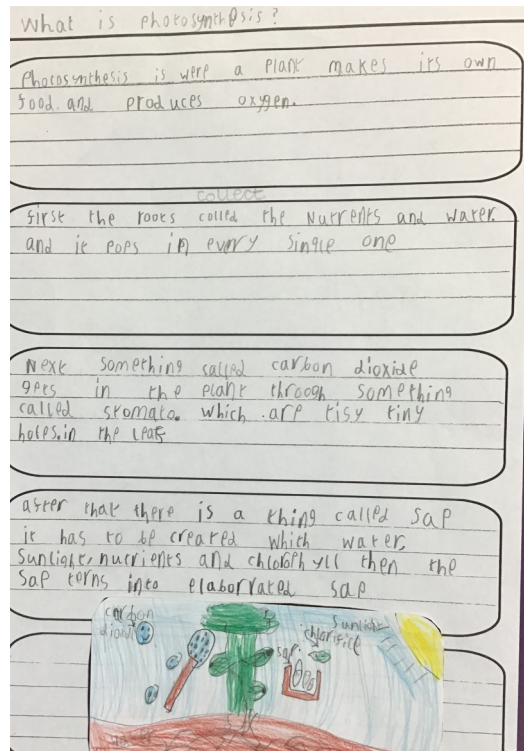 What is photosynthesis?
Photosynthesis is were a plant makes its own
food. and produces oxygen.
collect
first the roots colled the Nutrents and water.
and it pops in every single one
Next something called carbon dioxide
gets in the plant through something
called stomato. which are tisy tiny
holes.in the leafs
after that there is a thing called sap
it has to be created which water,
sunlight, nutrients and chloroph yll then the
sap terns into elaborrated sap
carbon
dioxide
sap
sunlight